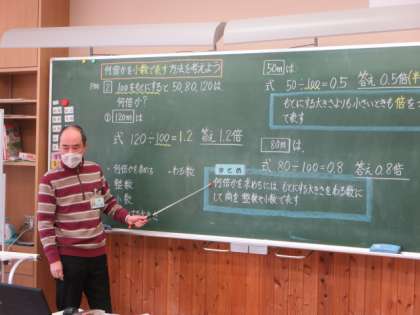 何倍かを小数で表す方法を考えよう
② 100をもとにすると 50, 80, 120は
何倍か?
① 120mは
式 120÷100=1.2 答え 1.2倍
・何倍かを求める
整数
小数
わる数
50mは
式 50÷100=0.5 答え 0.5倍
もとにする大きさよりも小さいときも 倍を
て表す
80mは
式 80÷100=0.8 答え 0.8倍
まとめ
何倍かを求めるには、もとにする大きさをわる数に
して商を整数や小数で表す